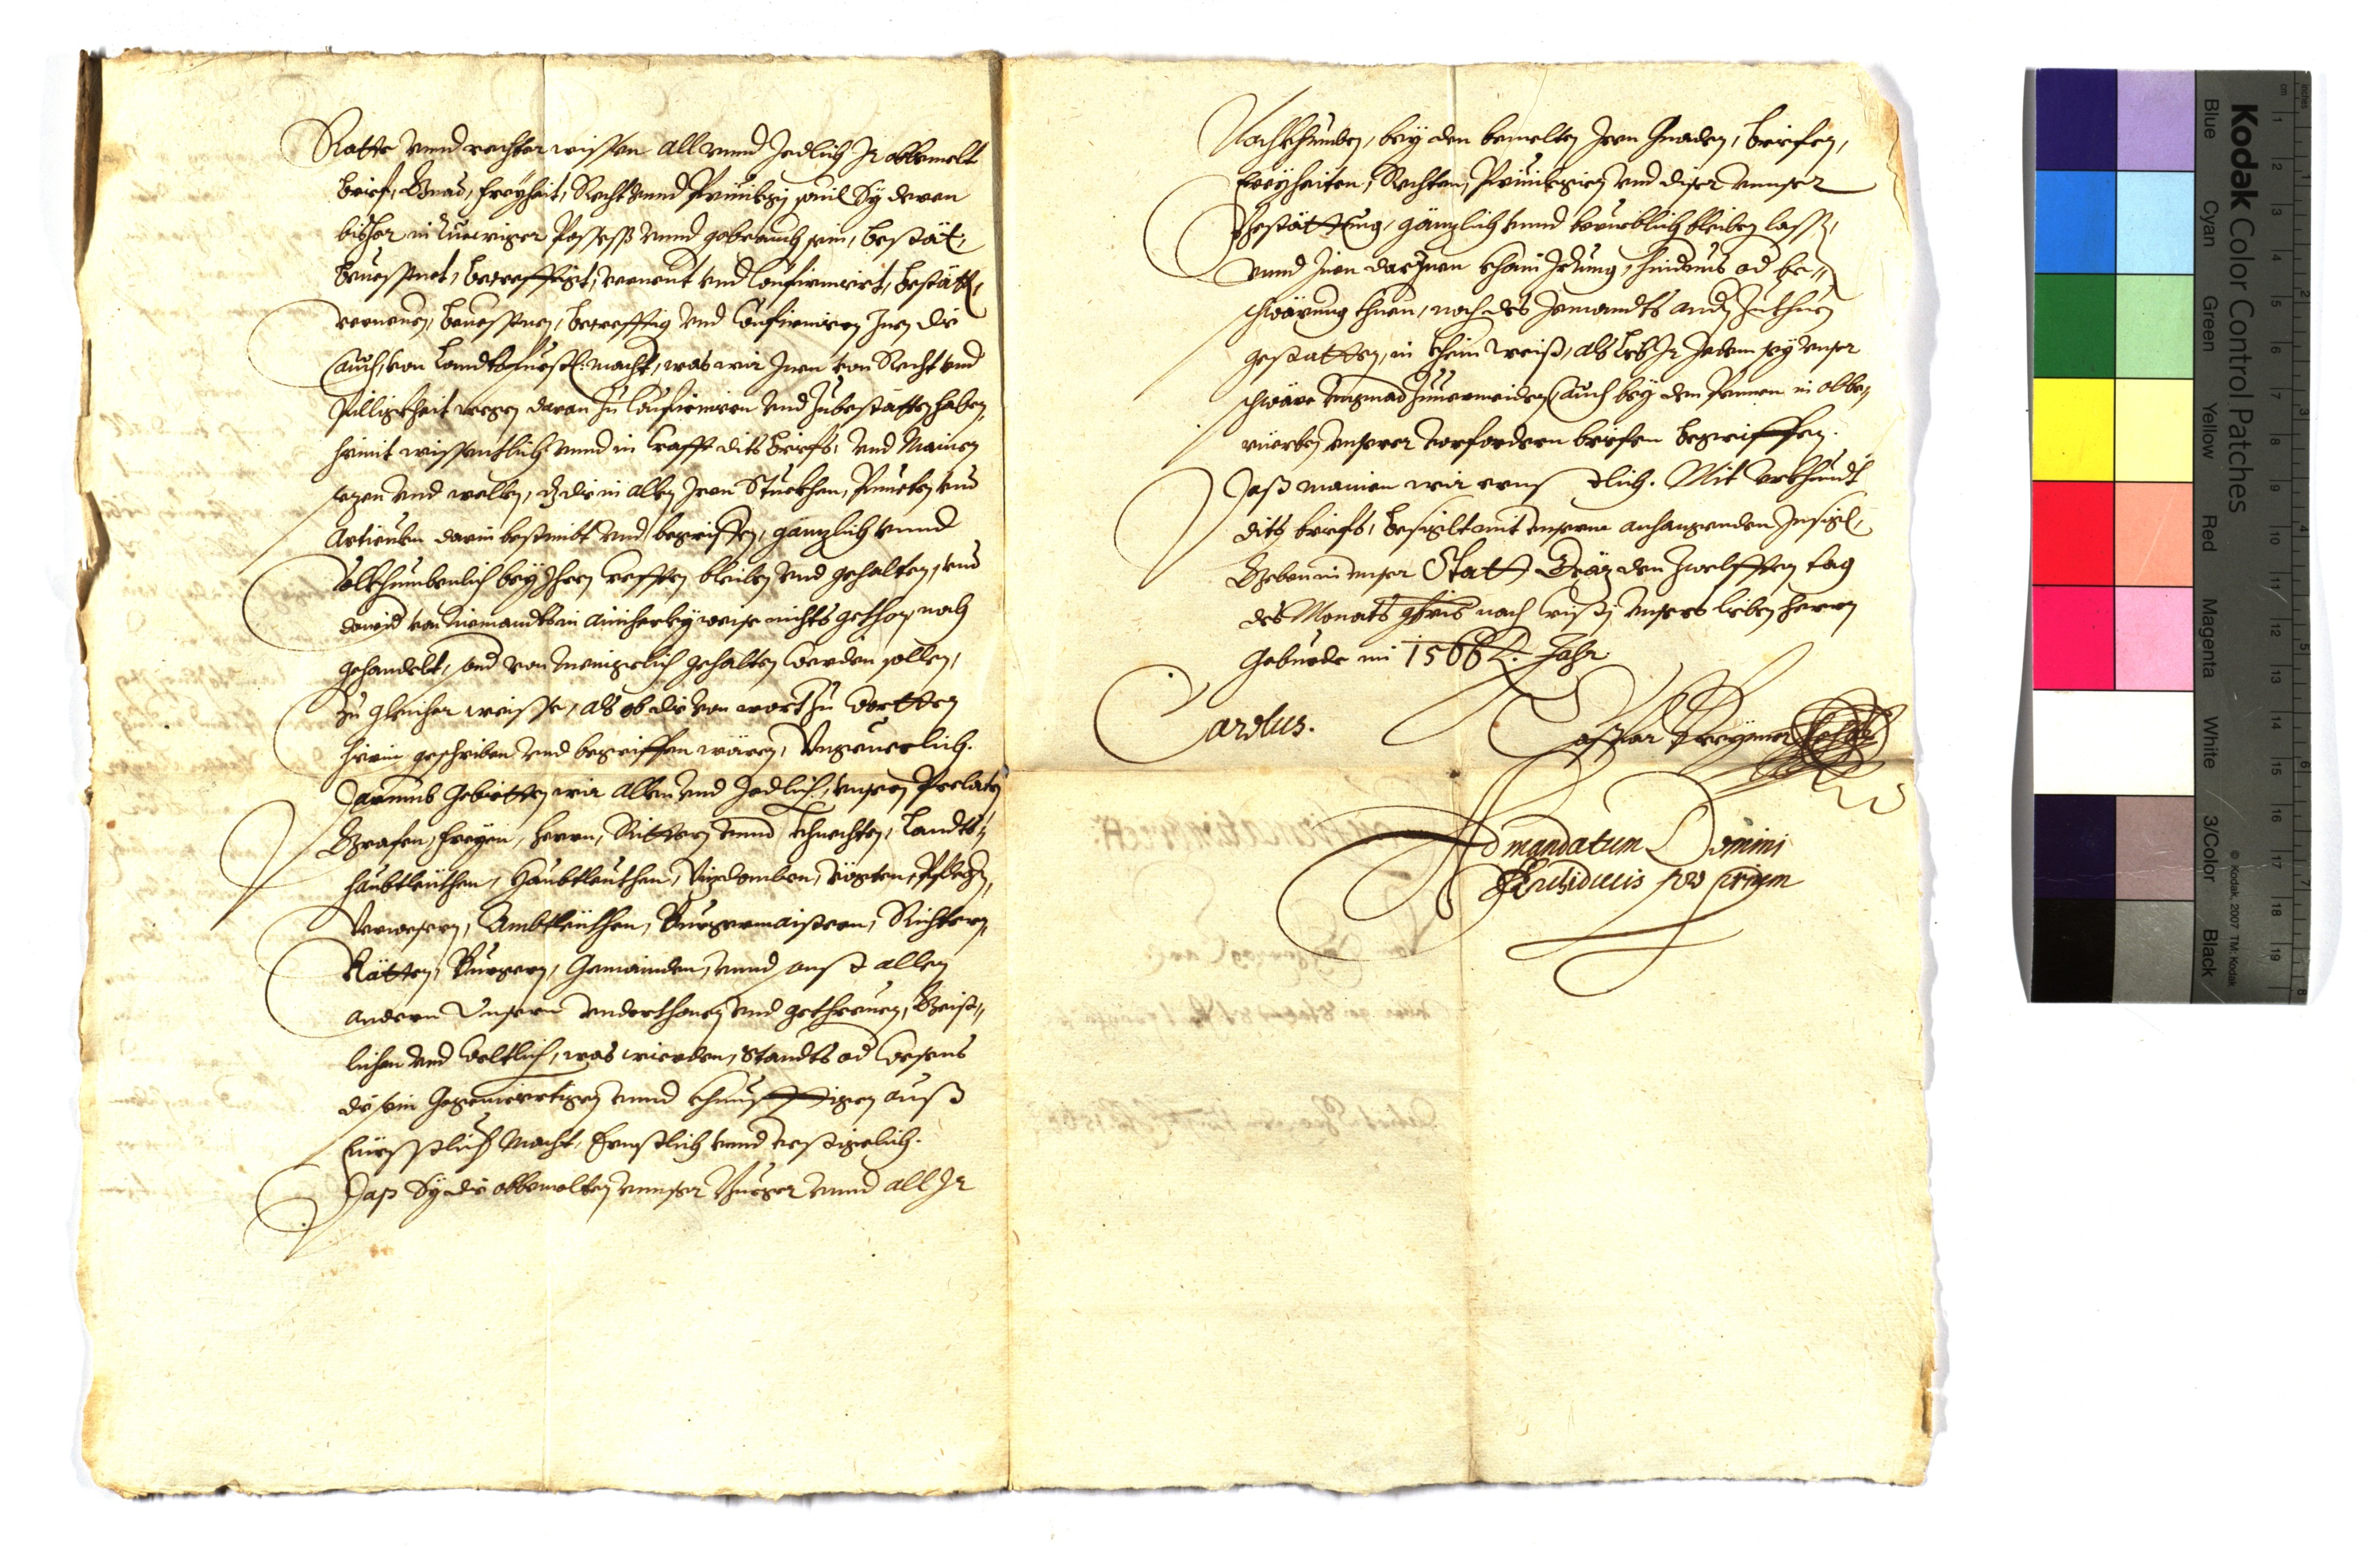 Ratte unnd rechter wissen all unnd Jedlich Jr obbemelt
brief, Gnad, freyheit, Recht unnd Priuilegij souil Sy deren
bisher in Rueiger Possess unnd gebrauch sein, bestät,
beuesstnet, becrefftigt, verneut und Confirmirt, bestätt,
verneuen, beuesstnen, becrefftig und Confirmiren Jnen die
auch, von Landtsfürstl: macht, was wir Jnen von Recht und
Pilligkheit wegen daran zu Confirmiren und zubestätten haben,
hiemit wissentlich unnd in Crafft dits briefs, und Mainen
sezen und wellen, dz die in allen Jren Stuckhen, Puncten und
Articuln darin bestimbt und begriffen, gannzlich unnd
volkhumbenlich bey Jhren crefften bleiben und gehalten, und
dawid von niemandts in ainicherley weise nichts gethon noch
gehandelt, und von menigclich gehalten werden sollen,
zu gleicher weisse, als ob die von wort zu wortten
hierin geschriben und begriffen wären, Ungeuerlich.
Darumb Gebietten wir allen und Jedlich, unsern Prelaten
Grafen, freyen, herrn, Rittern unnd Khnechten, Landts-
haubtleuthen, Haubtleuthen, Vizdomben, Vögten, Pflegern,
Verwesern, Ambtleuthen, Burgermaistern, Richtern,
Rätten, Burgern, Gemainden, unnd sonst allen
andern Unsern underthonen und gethreuen, Geist-
lichen und weltlich, was wierden, Standts od wesens
die sein Gegenwertigen unnd Khunfftigen auß
fürsstlich Macht, Ernstlich unnd vestigclich.
Daß Sy die obbemelten unnser Burger unnd all Jr
Nachkhumben, bey den bemelten Jren Gnaden, briefen,
freyheiten, Rechten, Priuilegien und diser unnser
Bestättung, gänzlich unnd beruelich bleiben lassen,
unnd Jnen darJnen khain Jrrung, hindnus od be-
schwärung thuen, noch des Jemandts andern Zuthuen
gestatten, in khein weiß, als lieb Jr Jedem sey unser
schwäre ungnad zuuermeiden, auch bey den Peenen in obbe-
rüerten unserer vorfordern briefen begriffen.
Das mainen wir ernstlich. Mit Urkhundt
dits briefs, besiglt mit unserm anhangenden Jnsigl,
Geben in unser Statt Gräz den zwelfften tag
des Monats 9bris nach Cristi unsers lieben herrn
Geburde im 1564. Jahr.
Carolus. Caspar Breyner
Ad mandatum Domini
Archiducis